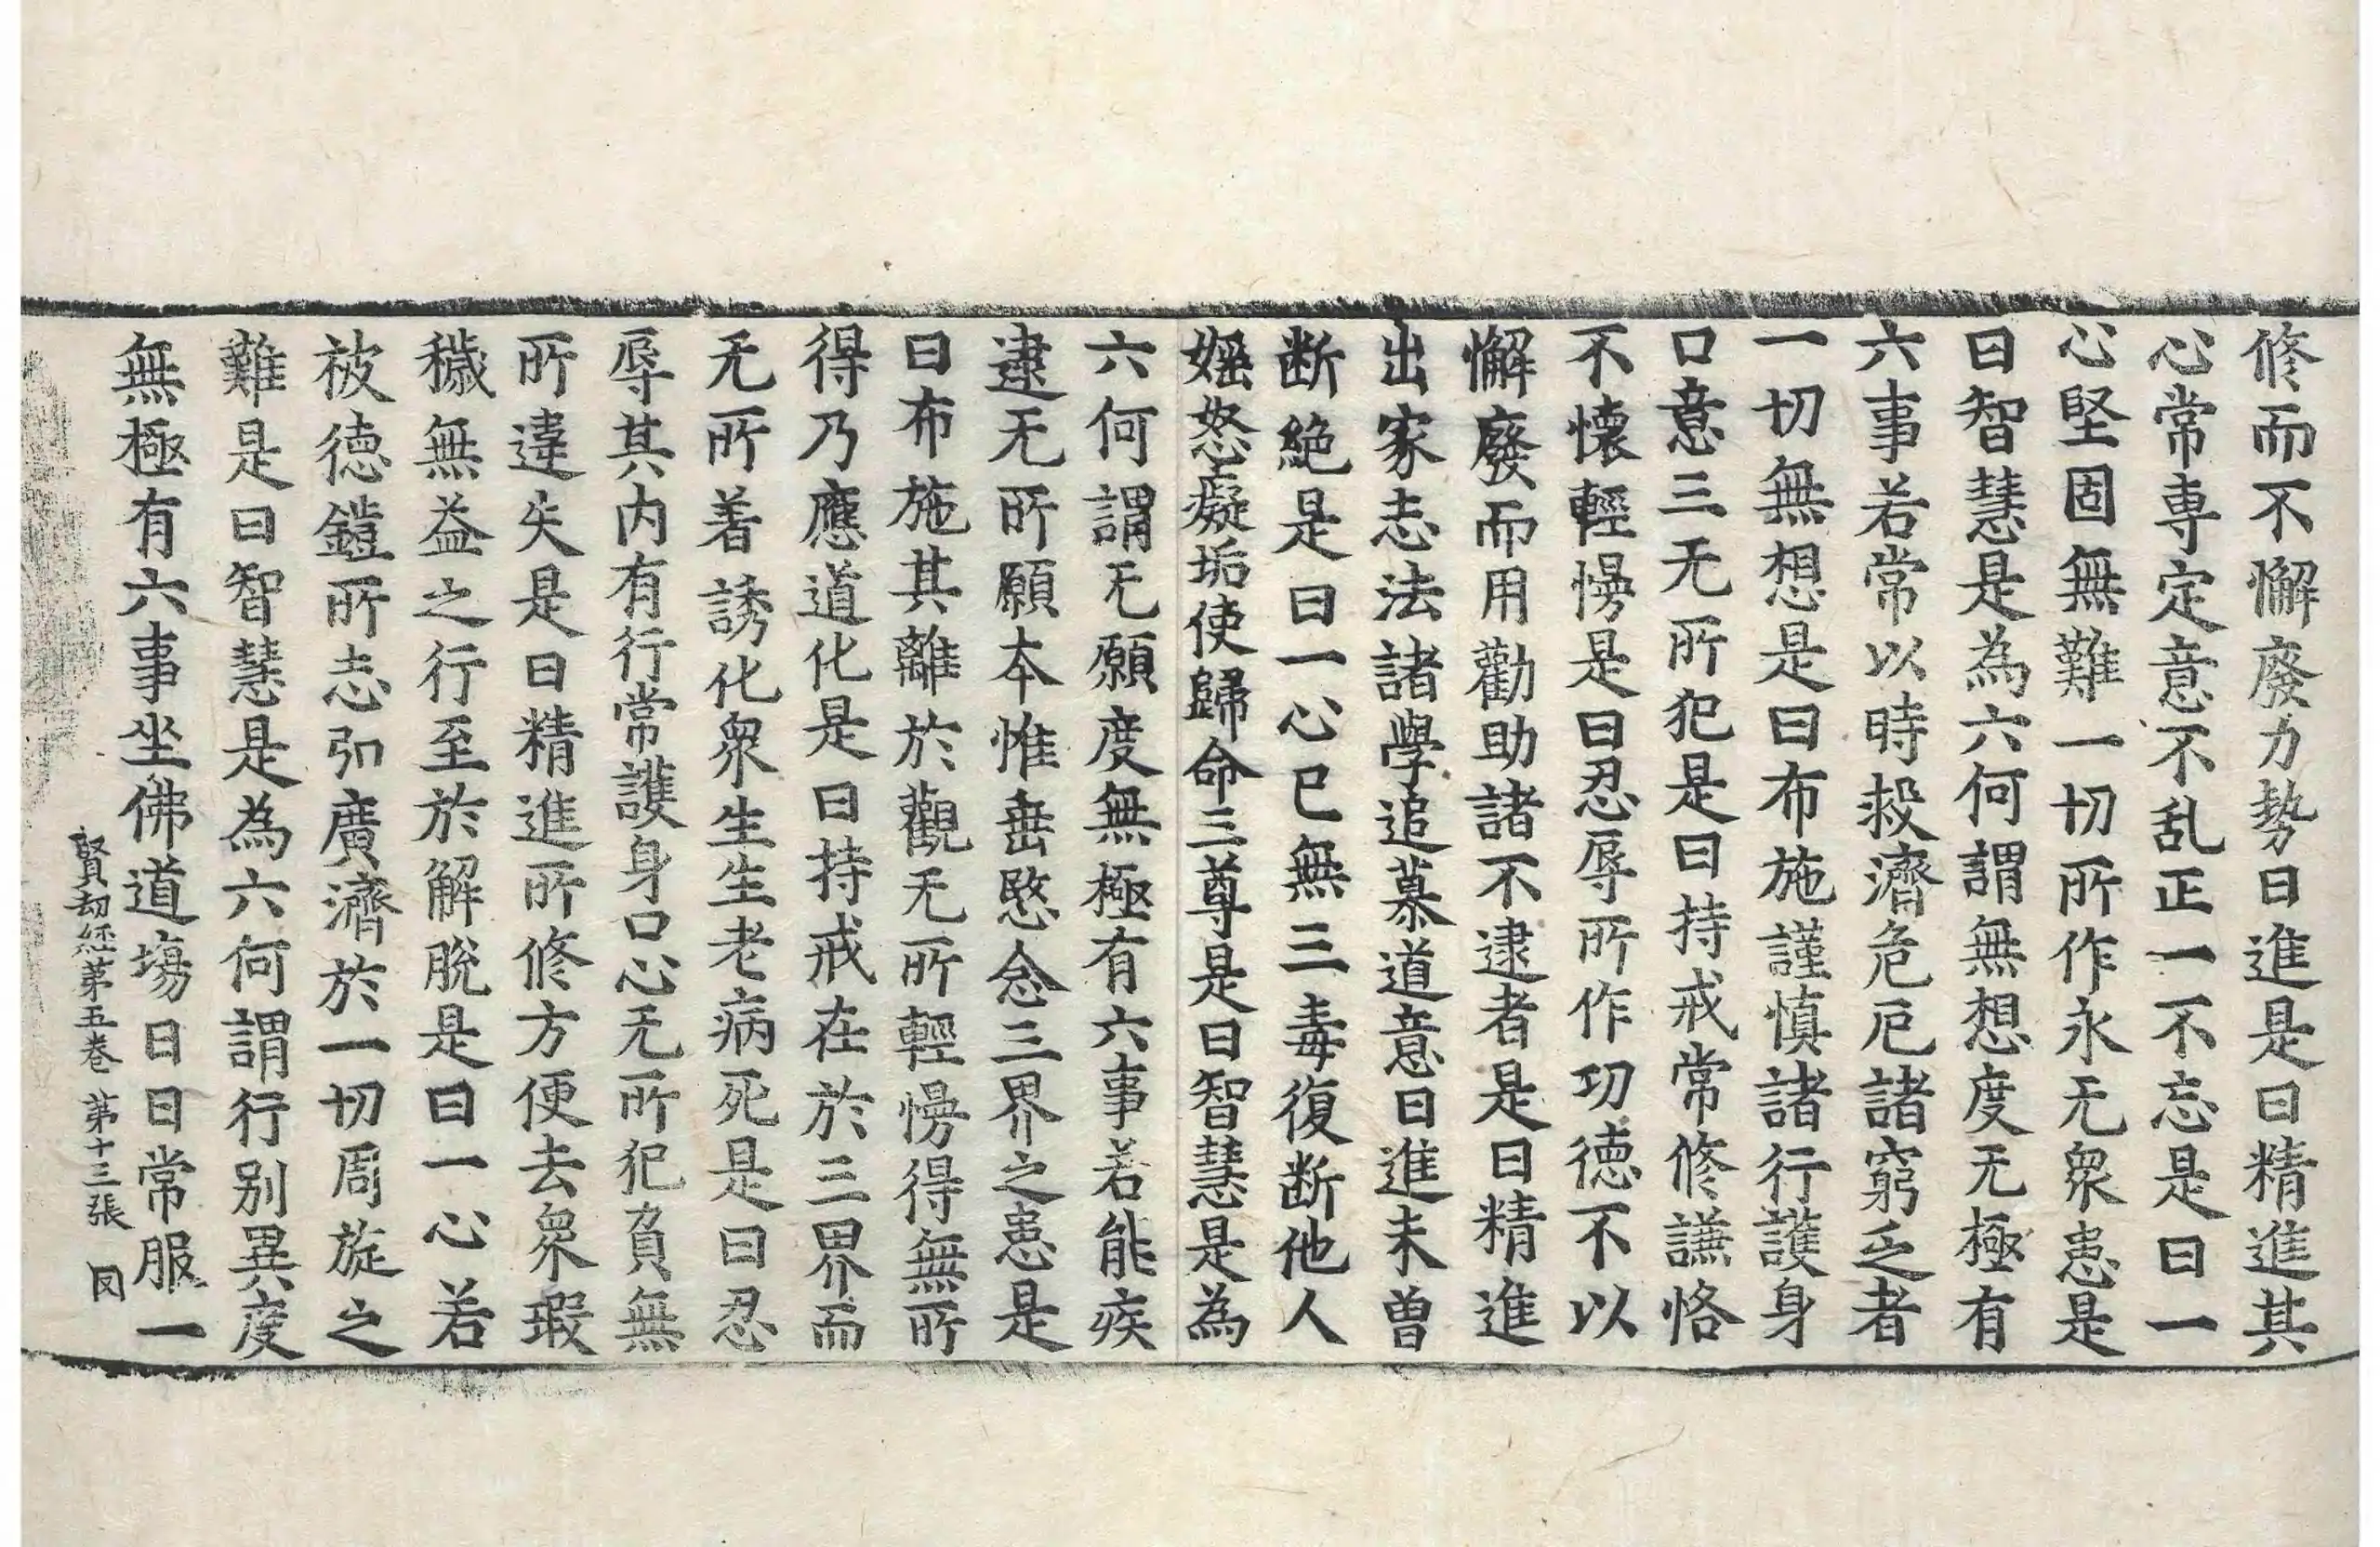 修而不懈廢力勢日進是曰精進其
心常専定意不乱正一不忘是曰一
心堅固無難一切所作永无衆患是
曰智慧是為六何謂無想度无極有
六事若常以時救濟危厄諸窮乏者
一切無想是曰布施謹慎諸行護身
口意三无所犯是曰持戒常修謙恪
不懷輕慢是曰忍辱所作功德不以
懈廢而用勸助諸不逮者是曰精進
出家志法諸學追慕道意日進未曽
断絶是曰一心已無三毒復断他人
婬怒癡垢使歸命三尊是曰智慧是為
六何謂无願度無極有六事若能疾
逮无所願本惟垂愍念三界之患是
曰布施其離於觀无所輕慢得無所
得乃應道化是曰持戒在於三界而
无所著誘化衆生生老病死是曰忍
辱其内有行常護身口心无所犯負無
所違失是曰精進所修方便去衆瑕
穢無益之行至於解脫是曰一心若
被德鎧所志弘廣濟於一切周旋之
難是曰智慧是為六何謂行别異度
無極有六事坐佛道塲日日常服一
賢劫經苐五巻 苐十三張 因